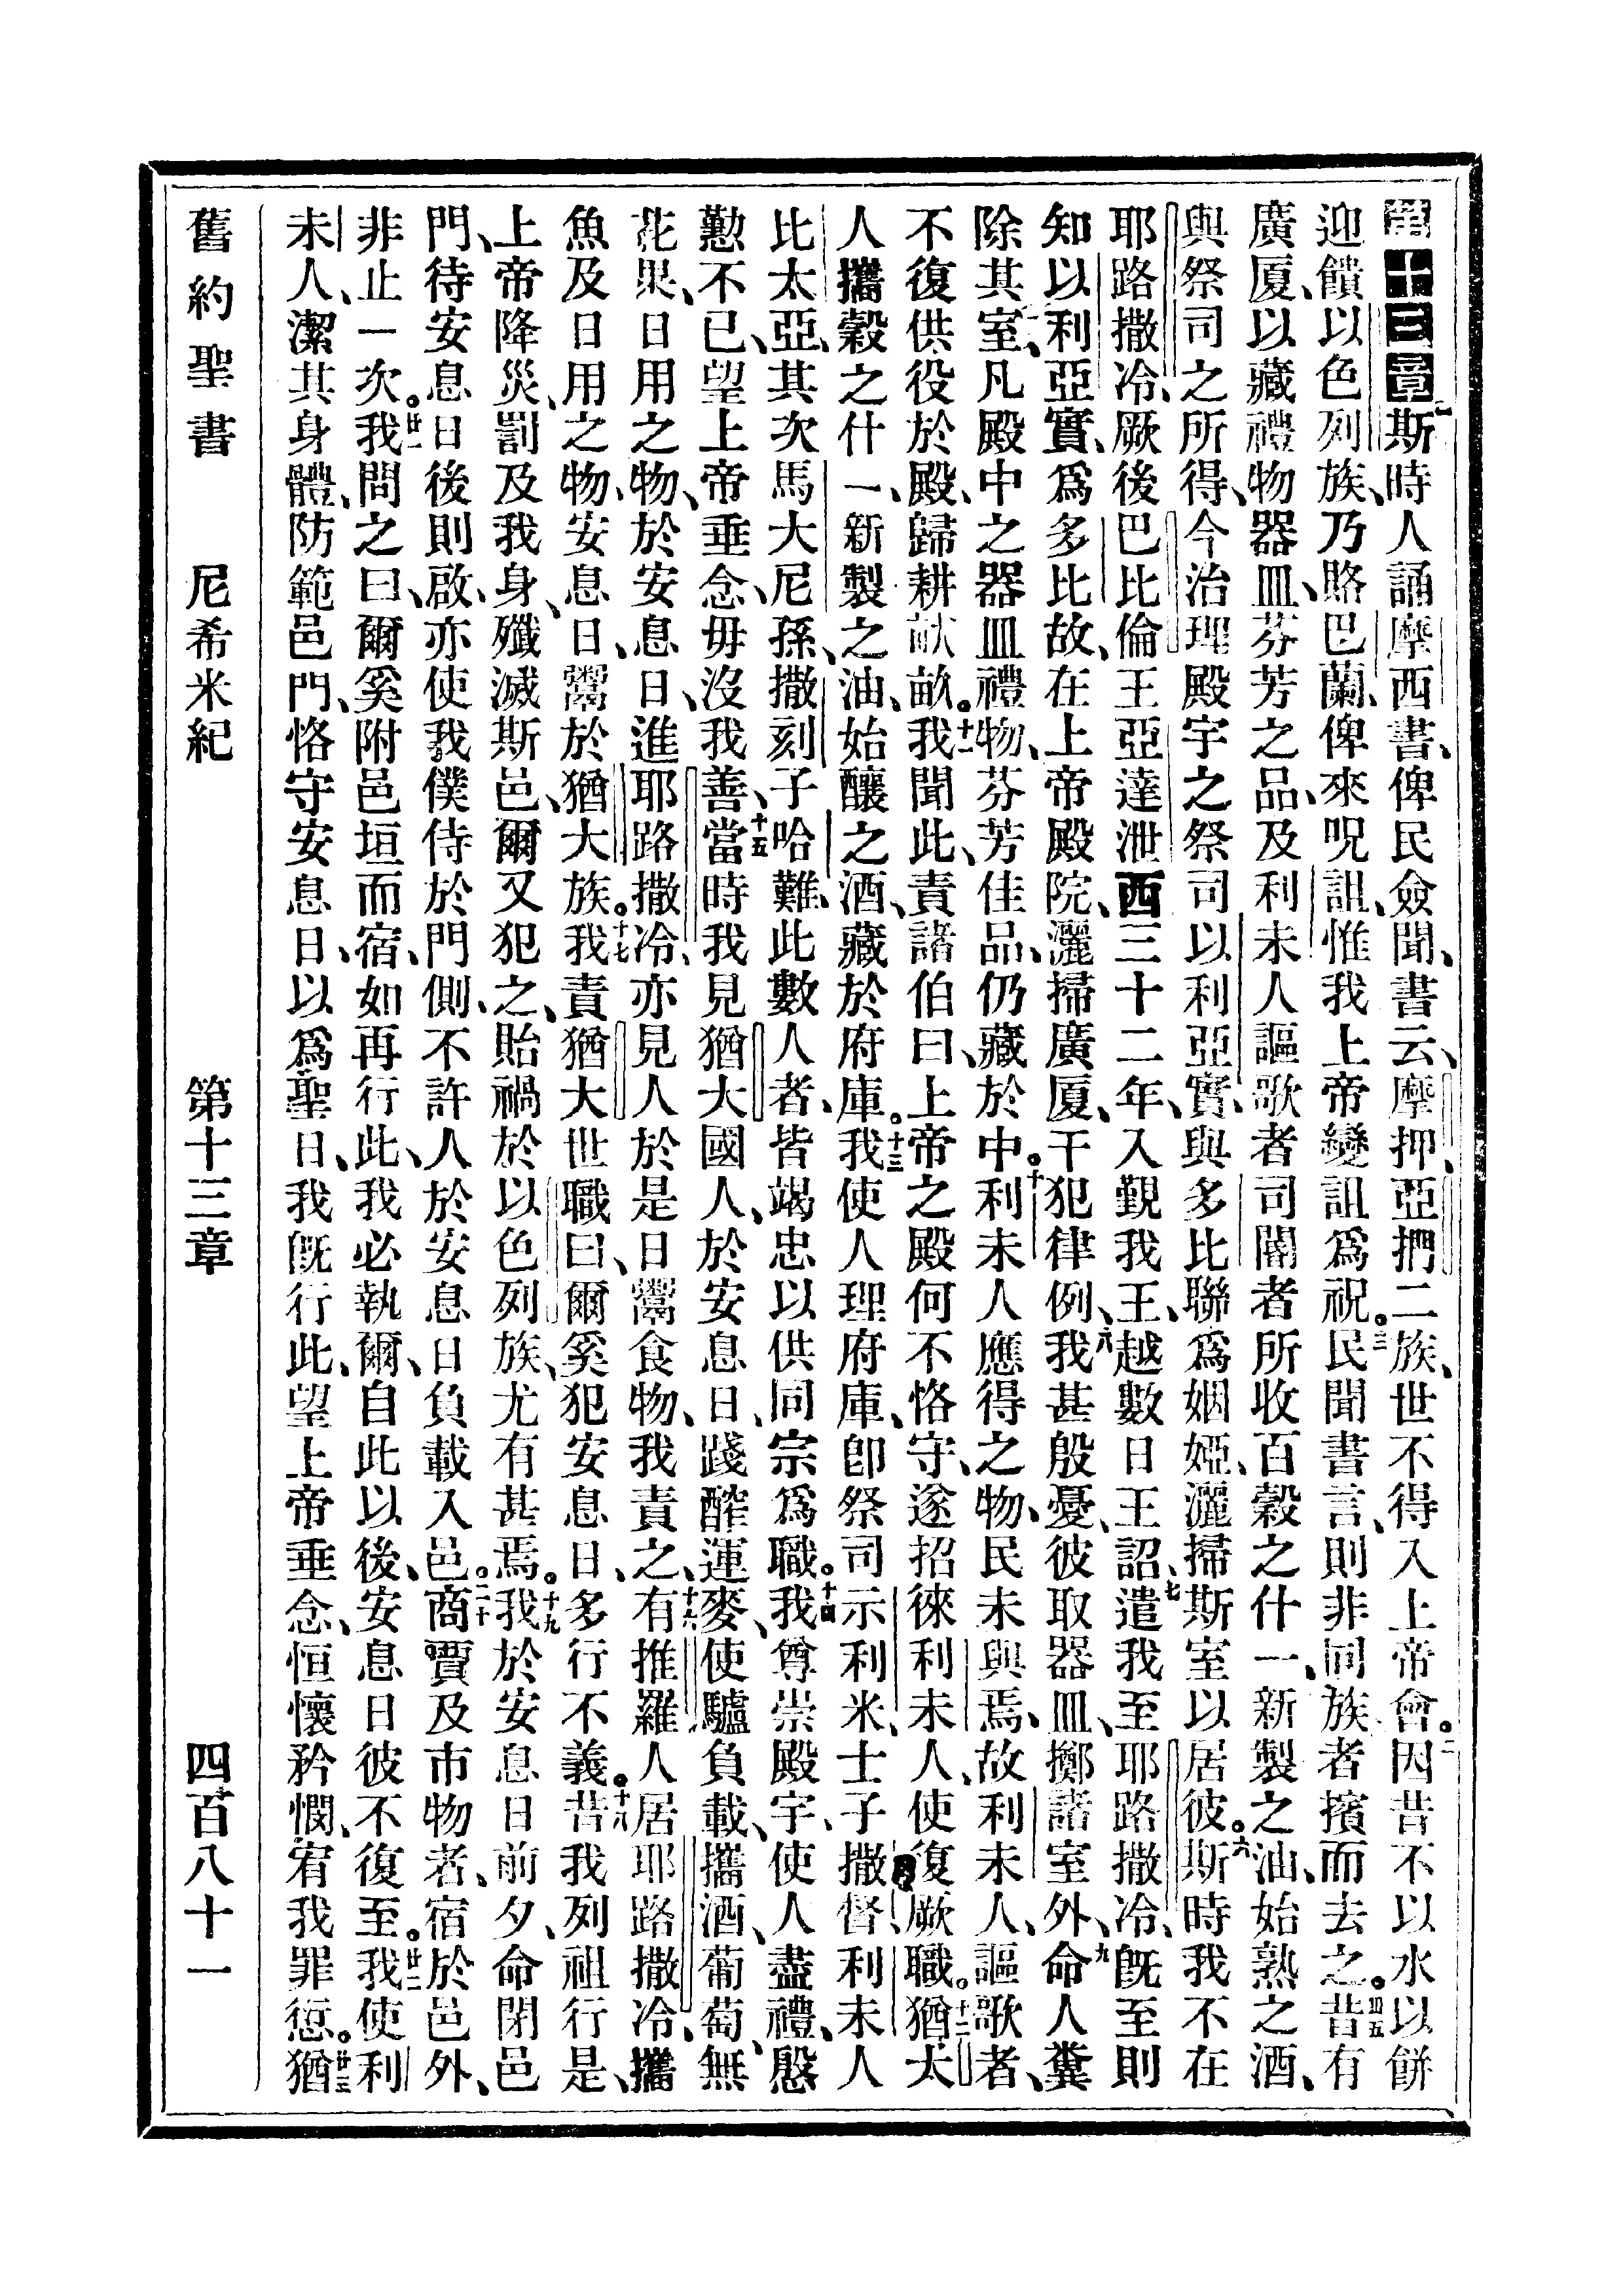 第十三章一斯時人誦摩西書、俾民僉聞、書云、摩押、亞捫二族、世不得入上帝會。二因昔不以水以餅
迎饋以色列族、乃賂巴蘭、俾來呪詛、惟我上帝變詛爲祝。三民聞書言、則非同族者擯而去之。四五昔有
廣厦、以藏禮物、器皿、芬芳之品、及利未人謳歌者司閽者所收百穀之什一、新製之油、始熟之酒、
與祭司之所得、今治理殿宇之祭司以利亞實、與多比聯爲姻婭、灑掃斯室以居彼。六斯時我不在
耶路撒冷、厥後巴比倫王亞達泄西三十二年、入覲我王、越數日王詔七遣我至耶路撒冷、旣至則
知以利亞實、爲多比故、在上帝殿院、灑掃廣厦、干犯律例、八我甚殷憂、彼取器皿、擲諸室外、九命人糞
除其室、凡殿中之器皿禮物、芬芳佳品、仍藏於中。十利未人應得之物、民未與焉、故利未人、謳歌者、
不復供役於殿、歸耕畎畝。十一我聞此、責諸伯曰、上帝之殿何不恪守、遂招徠利未人、使復厥職。十二猶太
人攜穀之什一、新製之油、始釀之酒、藏於府庫。十三我使人理府庫、卽祭司示利米、士子撒督、利未人
比太亞、其次馬大尼孫、撒刻子哈難、此數人者、皆竭忠以供同宗爲職。十四我尊崇殿宇、使人盡禮、慇
懃不已、望上帝垂念、毋沒我善、十五當時我見猶大國人、於安息日、踐醡運麥、使驢負載、攜酒、葡萄、無
花果、日用之物、於安息日、進耶路撒冷、亦見人於是日鬻食物、我責之、十六有推羅人居耶路撒冷、攜
魚及日用之物、安息日、鬻於猶大族。十七我責猶大世職曰、爾奚犯安息日、多行不義。十八昔我列祖行是、
上帝降災、罰及我身、殲滅斯邑、爾又犯之、貽禍於以色列族、尤有甚焉。十九我於安息日前夕、命閉邑
門、待安息日後則啟、亦使我僕侍於門側、不許人於安息日負載入邑。二十商賈及市物者、宿於邑外、
非止一次。廿一我問之曰、爾奚附邑垣而宿、如再行此、我必執爾、自此以後、安息日彼不復至。廿二我使利
未人、潔其身體、防範邑門、恪守安息日、以爲聖日、我旣行此、望上帝垂念、恒懷矜憫、宥我罪愆。廿三猶
舊約聖書　尼希米紀　第十三章　四百八十一